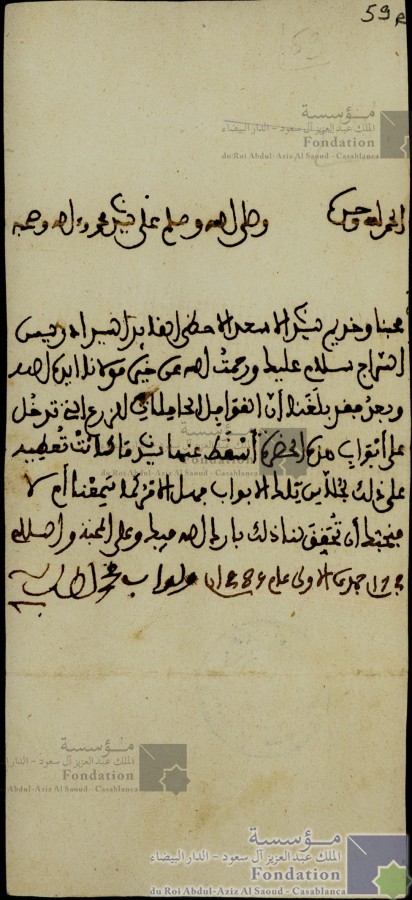 59
مؤسسة
الملك عبد العزيز آل سعود - الدار البيضاء
Fondation
du Roi Abdul-Aziz Al Saoud - Casablanca
الحمد لله وحده وصلى الله وسلم على سيدنا محمد وآله وصحبه
محبنا وخديم سيدنا الاسعد الاحظى القائد السيد ادريس
السراج سلام عليك ورحمت الله عن خير مولانا ايده الله
وبعد فقد بلغنا أن القوافل الحاملات للزرع التي تدخل
على أبواب هذه الحضرة أسقط عنها سيدنا ما كانت تعطيه
على ذلك بتلك الابواب فهل الامر كما سمعنا أم لا
فنحبك أن تحقق لنا ذلك بارك الله فيك وعلى المحبة والسلام
جمادى الاولى عام
مؤسسة
الملك عبد العزيز آل سعود - الدار البيضاء
Fondation
du Roi Abdul-Aziz Al Saoud - Casablanca
مؤسسة
الملك عبد العزيز آل سعود - الدار البيضاء
Fondation
du Roi Abdul-Aziz Al Saoud - Casablanca